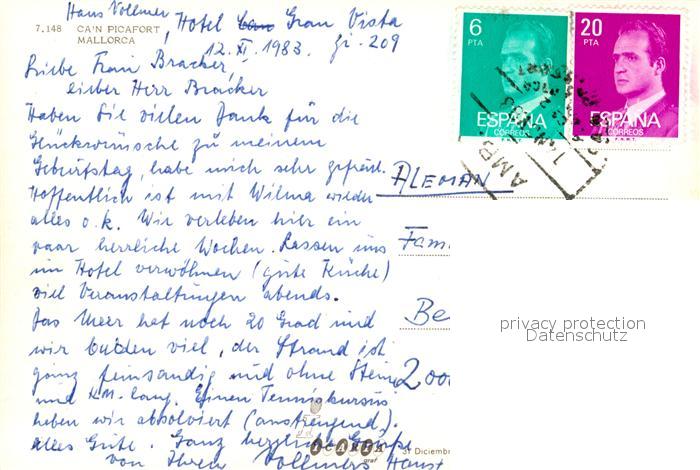 Hans Vollmer, Hotel Gran Vista
7.148 CA'N PICAFORT
MALLORCA
12. XI. 1983. Zi-209
Liebe Frau Bracker,
lieber Herr Bracker
Haben Sie vielen Dank für die
Glückwünsche zu meinem
Geburtstag, habe mich sehr gefreut.
Hoffentlich ist mit Wilma wieder
alles o.k. Wir verleben hier ein
paar herrliche Wochen. Lassen uns
im Hotel verwöhnen (gute Küche)
viel Veranstaltungen abends.
Das Meer hat noch 20 Grad und
wir baden viel, der Strand ist
ganz feinsandig und ohne Steine
und KM-lang. Einen Tenniskursus
haben wir absolviert (anstrengend).
Alles Gute. Ganz herzliche Grüße
von Ihren Vollmers Hans+
6
PTA
ESPAÑA
CORREOS
20
PTA
ESPAÑA
CORREOS
ALEMAN
Fam
Be
2000
privacy protection
Datenschutz
ICARIA
31 Diciemb